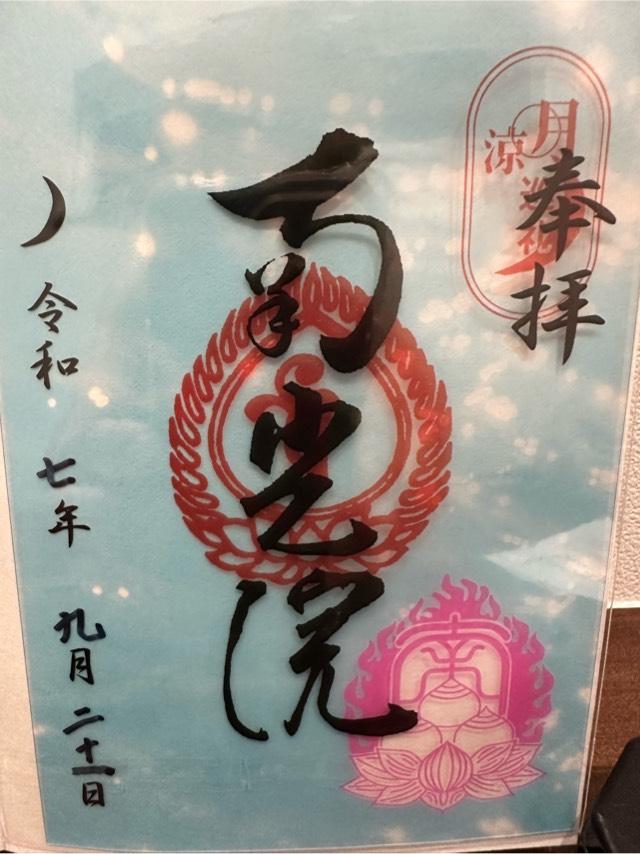 奉拝
月巡礼
涼
南光院
南
令和 七年 九月 二十一日